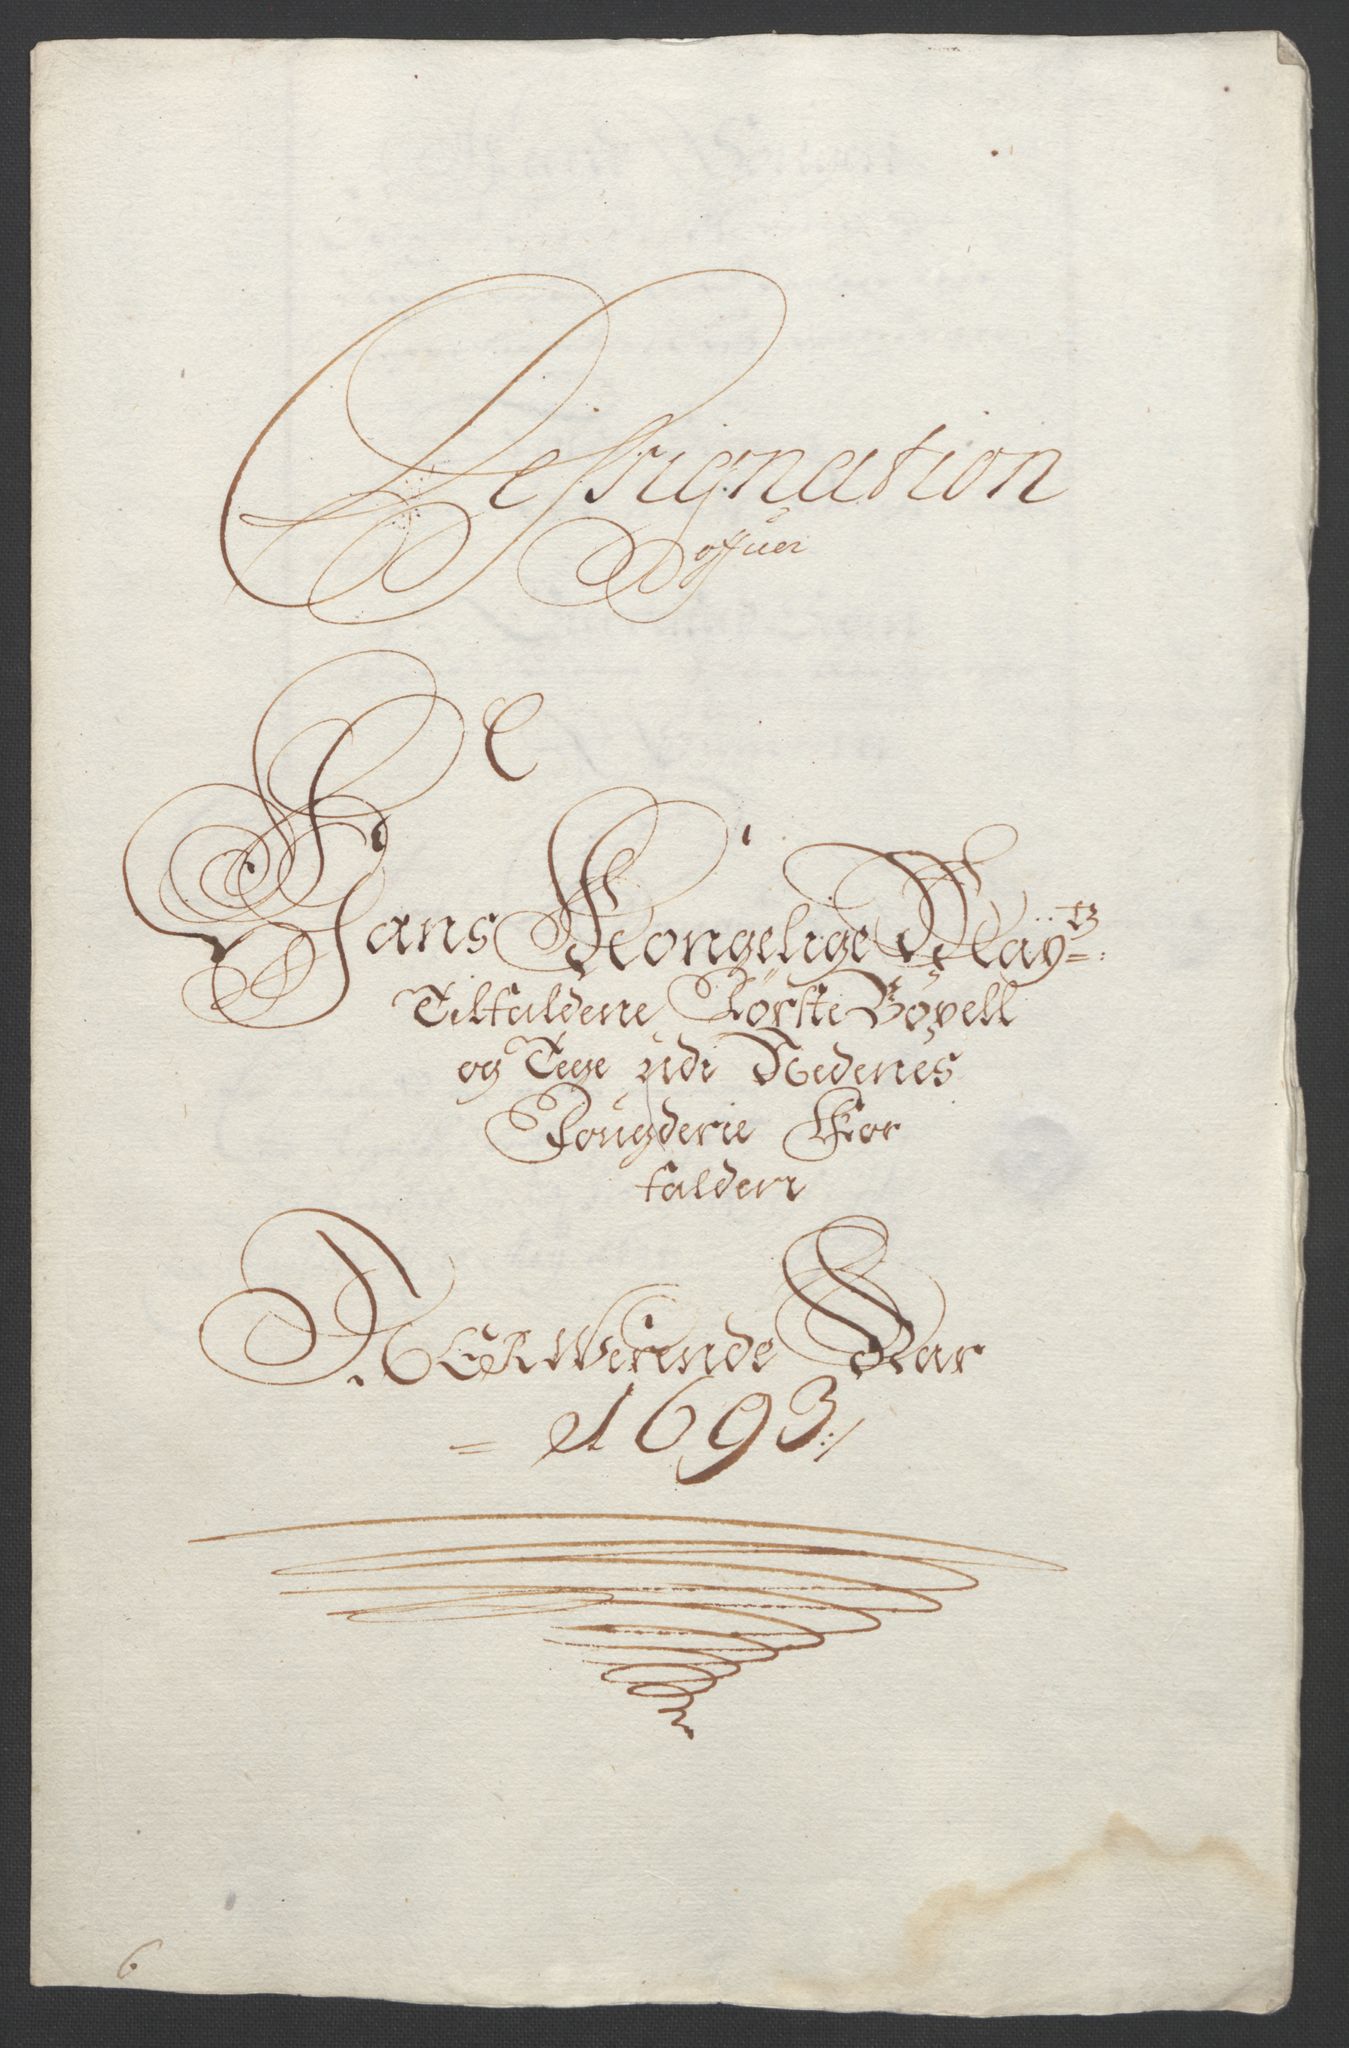 Dessignation
offuer
Hans Kongelige Maÿtz:
Tilfaldene Første Bøxell
og Tege udi Nedenes
Fougderie For
falden
Nerwerende Aar
= 1693:/
6